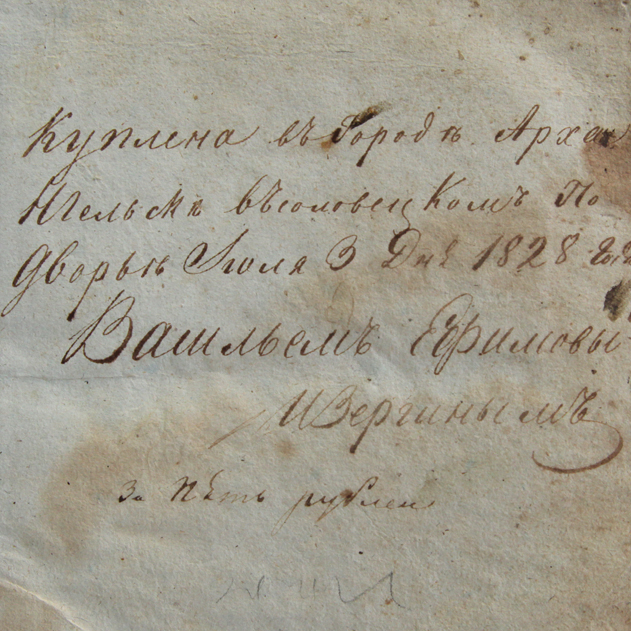 Куплена въ городѣАрхан
нгельскѣ въсоловецкомъ по
дворьи Іюля 3 Дня 1828 года
Васильемъ Ефимовы
за пять рублеи